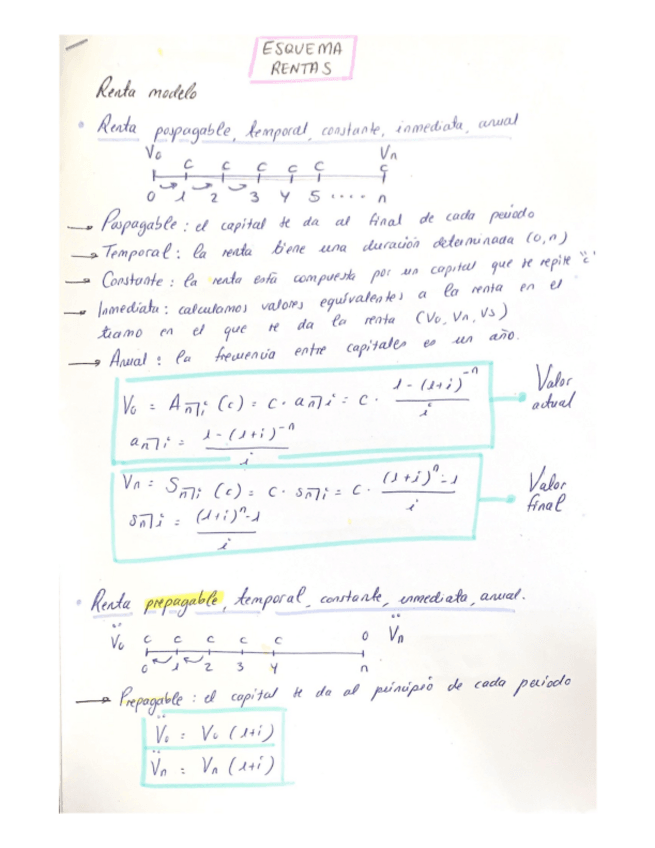 ESQUEMA
RENTAS
Renta modelo
• Renta pospagable, temporal, constante, inmediata, anual
V₀ Vn
c c c c c c
0 1 2 3 4 5 .... n
→ Pospagable: el capital se da al final de cada periodo
→ Temporal: la renta tiene una duración determinada (0,n)
→ Constante: la renta está compuesta por un capital que se repite "c"
→ Inmediata: calculamos valores equivalentes a la renta en el
tramo en el que se da la renta (V₀, Vn, Vs)
→ Anual: la frecuencia entre capitales es un año.
V₀ = An̅|i (c) = c · an̅|i = c · (1 - (1+i)⁻ⁿ) / i
Valor
actual
an̅|i = (1 - (1+i)⁻ⁿ) / i
Vn = Sn̅|i (c) = c · sn̅|i = c · ((1+i)ⁿ - 1) / i
Valor
final
sn̅|i = ((1+i)ⁿ - 1) / i
• Renta prepagable, temporal, constante, inmediata, anual.
V̈₀ c c c c c 0 V̈n
0 1 2 3 4 n
→ Prepagable: el capital se da al principio de cada periodo
V̈₀ = V₀ (1+i)
V̈n = Vn (1+i)